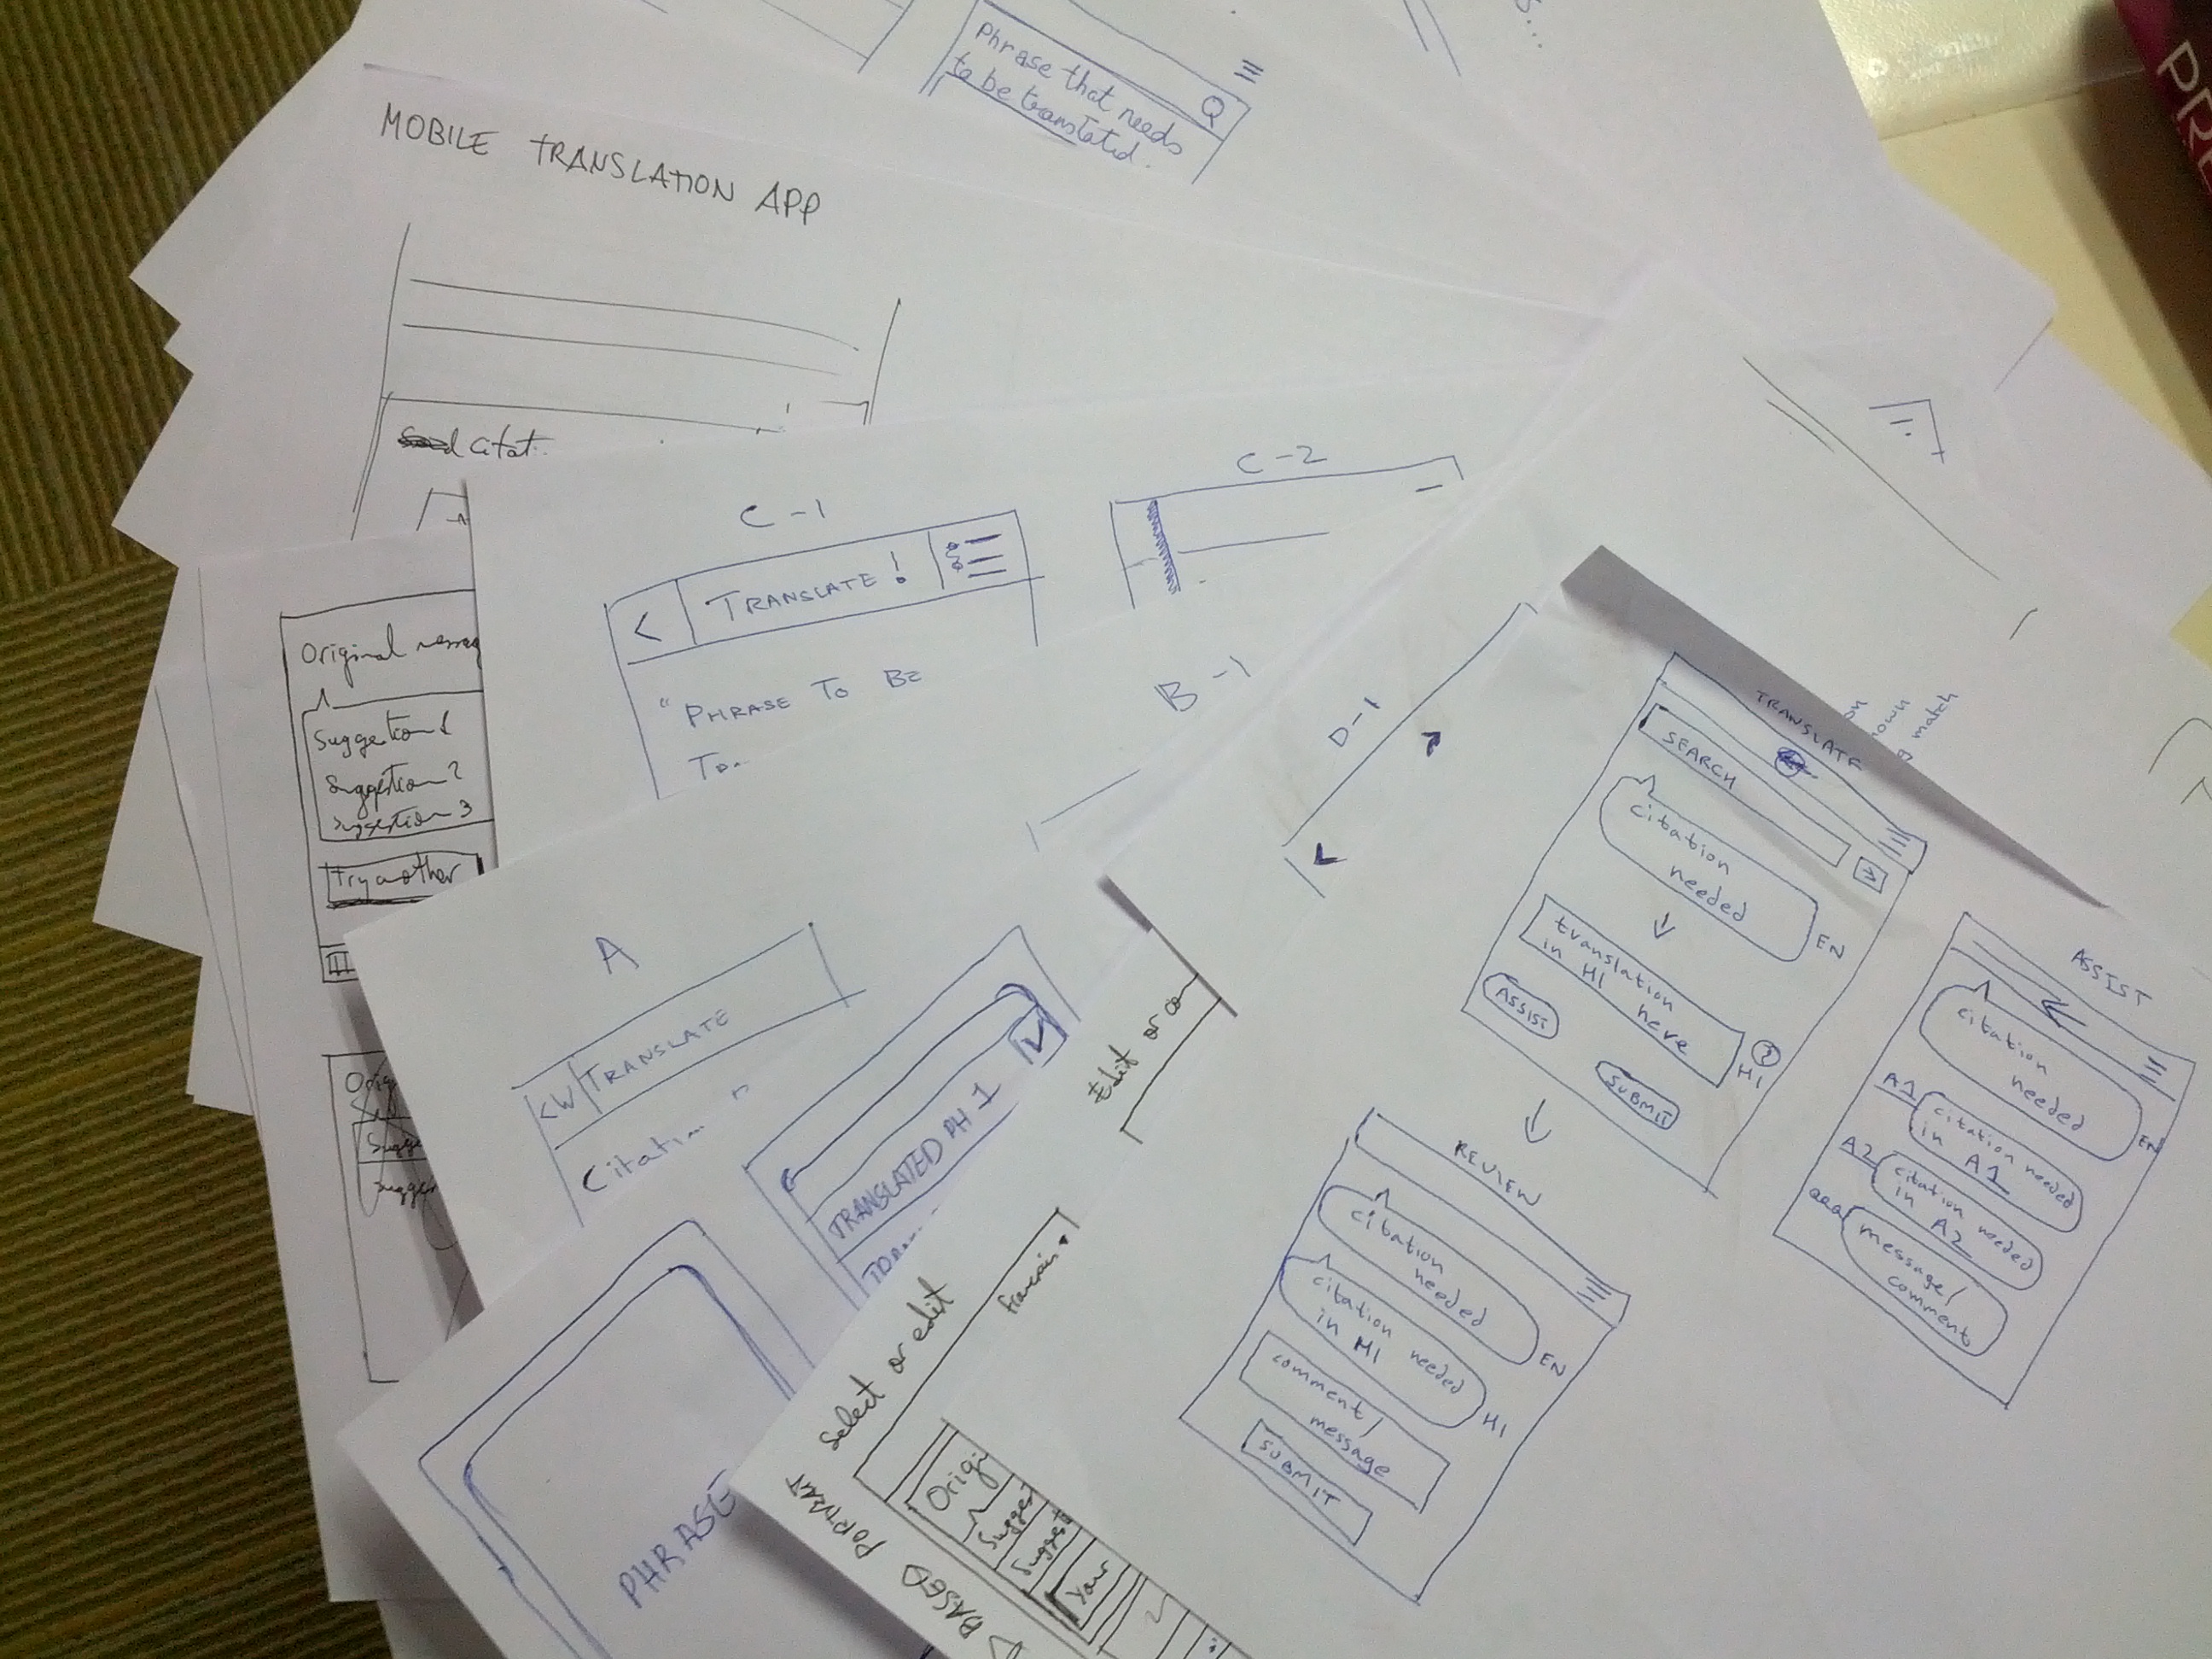 Phrase that needs
to be translated.
MOBILE TRANSLATION APP
citat..
C-1
< TRANSLATE!
"PHRASE TO BE
C-2
B-1
D-1
Original messag
Suggestion 1
Suggestion 2
Suggestion 3
Try another
Orig
Sugge
Sugges
A
<W TRANSLATE
Citation
TRANSLATED PH 1
PHRASE
Edit or co
Select or edit
Origi
Sugges
Suggest
Your
BASED PORTRAIT
TRANSLATE
SEARCH
citation
needed
EN
translation
in HI here
HI
ASSIST
SUBMIT
own
match
REVIEW
citation
needed
EN
citation needed
in HI
HI
comment/
message
SUBMIT
ASSIST
citation
needed
EN
A1
citation needed
in A1
A2
citation needed
in A2
aaa
message/
comment
PRE